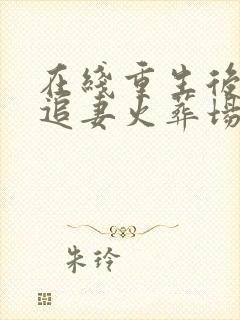 在线重生後
追妻火葬場
朱玲